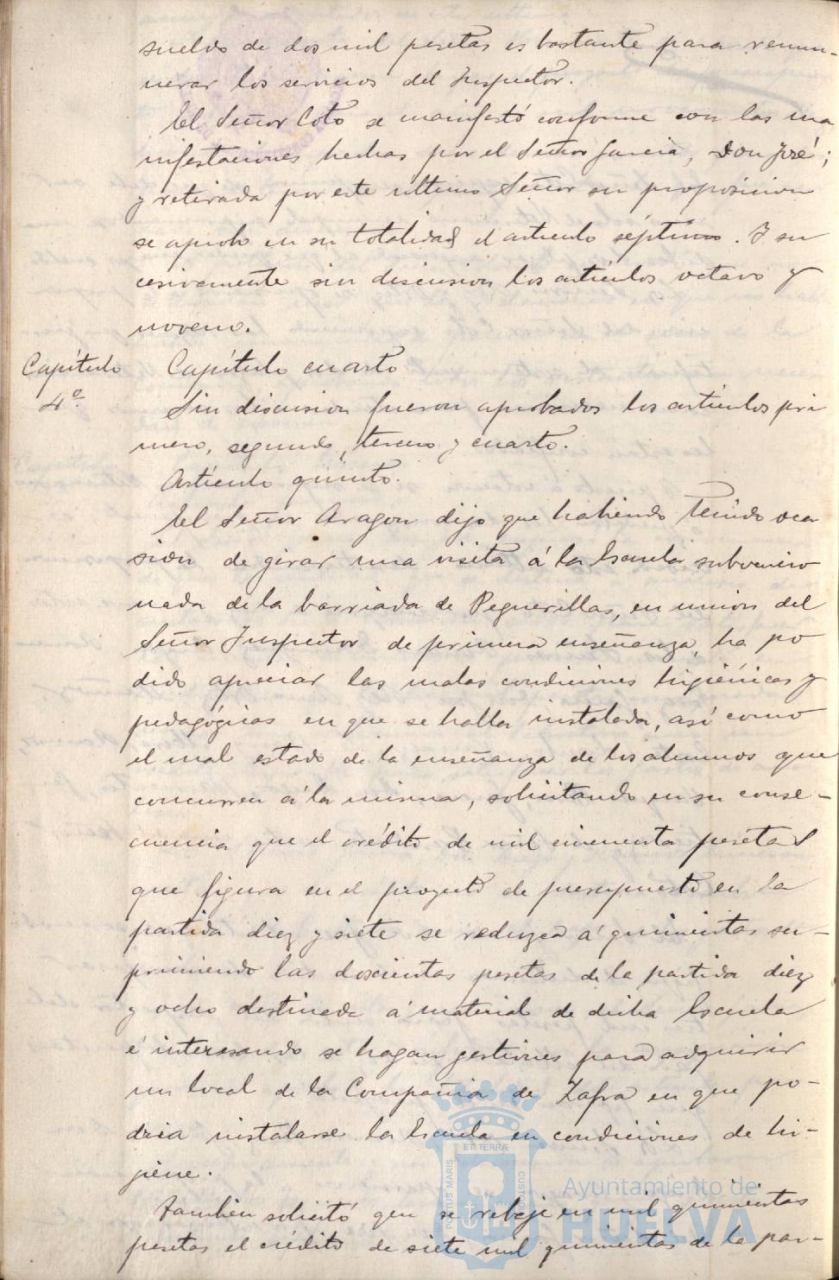 sueldo de dos mil pesetas es bastante para remu-
nerar los servicios del Inspector.
El Señor Coto se manifestó conforme con las ma
nifestaciones hechas por el Señor Garcia, Don José;
y retirada por este ultimo Señor su proposicion
se aprobo en su totalidad el articulo séptimo. Y su
cesivamente sin discusion los artículos octavo y
noveno.
Capítulo
4º
Capítulo cuarto
Sin discusion fueron aprobados los artículos pri
mero, segundo, tercero y cuarto.
Artículo quinto.
El Señor Aragon dijo que habiendo tenido oca
sion de girar una visita á la Escuela subvencio
nada de la barriada de Peguerillas, en union del
Señor Inspector de primera enseñanza, ha po
dido apreciar las malas condiciones higiénicas y
pedagógicas en que se halla instalada, así como
el mal estado de la enseñanza de los alumnos que
concurren á la misma, solicitando en su conse-
cuencia que el crédito de mil cincuenta pesetas
que figura en el proyecto de presupuesto en la
partida diez y siete se reduzca á quinientas su-
primiendo las doscientas pesetas de la partida diez
y ocho destinada á material de dicha Escuela
é interesando se hagan gestiones para adquirir
un local de la Compañia de Zafra en que po-
dria instalarse la Escuela en condiciones de hi-
giene.
Tambien solicitó que se rebaje en mil quinientas
pesetas el crédito de siete mil quinientas de la par-
PORTUS MARIS
ET TERRA
CUSTODIA
Ayuntamiento de
HUELVA